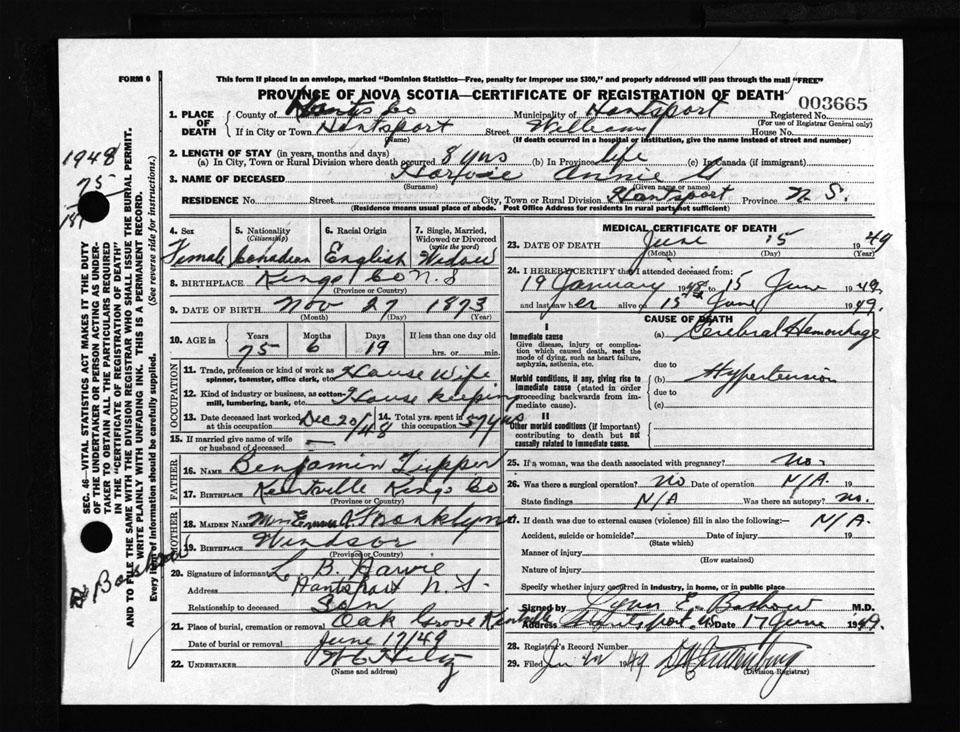 FORM 6
This form if placed in an envelope, marked "Dominion Statistics—Free, penalty for improper use $300," and properly addressed will pass through the mail "FREE"
PROVINCE OF NOVA SCOTIA—CERTIFICATE OF REGISTRATION OF DEATH
003665
1. PLACE OF DEATH County of Hants Co Municipality of Hantsport Registered No.
(For use of Registrar General only)
If in City or Town Hantsport Street William House No.
(Name) (If death occurred in a hospital or institution, give the name instead of street and number)
2. LENGTH OF STAY (in years, months and days)
(a) In City, Town or Rural Division where death occurred 8 yrs (b) In Province life (c) In Canada (if immigrant)
3. NAME OF DECEASED Annie
(Surname) (Given name or names)
RESIDENCE No. Street City, Town or Rural Division Hantsport Province N.S.
(Residence means usual place of abode. Post Office Address for residents in rural parts not sufficient)
4. Sex 5. Nationality (Citizenship) 6. Racial Origin 7. Single, Married, Widowed or Divorced (write the word)
Female Canadian English Widow
8. BIRTHPLACE Kings Co N.S
(Province or Country)
9. DATE OF BIRTH Nov 27 1873
(Month) (Day) (Year)
10. AGE in Years Months Days If less than one day old
75 6 19 hrs. or min.
OCCUPATION
11. Trade, profession or kind of work as spinner, teamster, office clerk, etc. House Wife
12. Kind of industry or business, as cotton-mill, lumbering, bank, etc. House keeping
13. Date deceased last worked at this occupation Dec 20/48 14. Total yrs. spent in this occupation 57 yrs
15. If married give name of wife or husband of deceased —
FATHER
16. NAME Benjamin Tupper
17. BIRTHPLACE Kentville Kings Co
(Province or Country)
MOTHER
18. MAIDEN NAME Franklyn
19. BIRTHPLACE Windsor
(Province or Country)
20. Signature of informant L. B. Harvie
Address Hantsport N.S.
Relationship to deceased Son
21. Place of burial, cremation or removal Oak Grove Kentville
Date of burial or removal June 17/49
22. UNDERTAKER
(Name and address)
MEDICAL CERTIFICATE OF DEATH
23. DATE OF DEATH June 15 1949
(Month) (Day) (Year)
24. I HEREBY CERTIFY that I attended deceased from:
19 January 1948 to 15 June 1949,
and last saw her alive on 15th June 1949.
CAUSE OF DEATH
I
Immediate cause
Give disease, injury or complication which caused death, not the mode of dying, such as heart failure, asphyxia, asthenia, etc.
(a) Cerebral Hemorrhage
due to
Morbid conditions, if any, giving rise to immediate cause (stated in order proceeding backwards from immediate cause).
(b) Hypertension
due to
(c)
II
Other morbid conditions (if important) contributing to death but not causally related to immediate cause.
25. If a woman, was the death associated with pregnancy? no.
26. Was there a surgical operation? no Date of operation N/A. 19
State findings N/A Was there an autopsy? no.
27. If death was due to external causes (violence) fill in also the following:— N/A.
Accident, suicide or homicide? Date of injury 19
(State which)
Manner of injury
(How sustained)
Nature of injury
Specify whether injury occurred in industry, in home, or in public place
Signed by E. M.D.
Address Hantsport, N.S. Date 17 June 1949.
28. Registrar's Record Number
29. Filed 1949
(Division Registrar)
SEC. 46—VITAL STATISTICS ACT MAKES IT THE DUTY
OF THE UNDERTAKER OR PERSON ACTING AS UNDERTAKER
TO OBTAIN ALL THE PARTICULARS REQUIRED
IN THE "CERTIFICATE OF REGISTRATION OF DEATH"
AND TO FILE THE SAME WITH THE DIVISION REGISTRAR WHO SHALL ISSUE THE BURIAL PERMIT.
WRITE PLAINLY WITH UNFADING INK. THIS IS A PERMANENT RECORD.
Every item of information should be carefully supplied. (See reverse side for instructions.)
1948
75